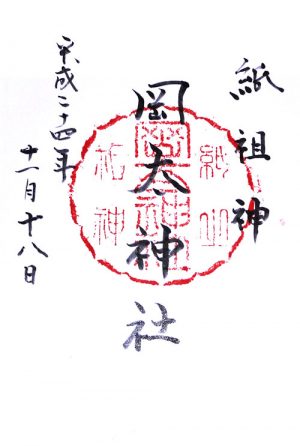 紙祖神
岡太神社
平成二十四年
十一月十八日
紙之
祖神